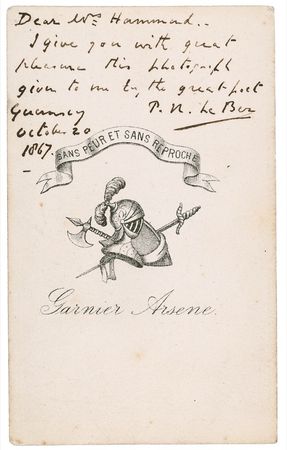 Dear Mrs Hammond..
I give you with great
pleasure this photograph
given to me by the great poet
Guernsey P. N. Le Ber
October 20
1867.
SANS PEUR ET SANS REPROCHE
Garnier Arsene.